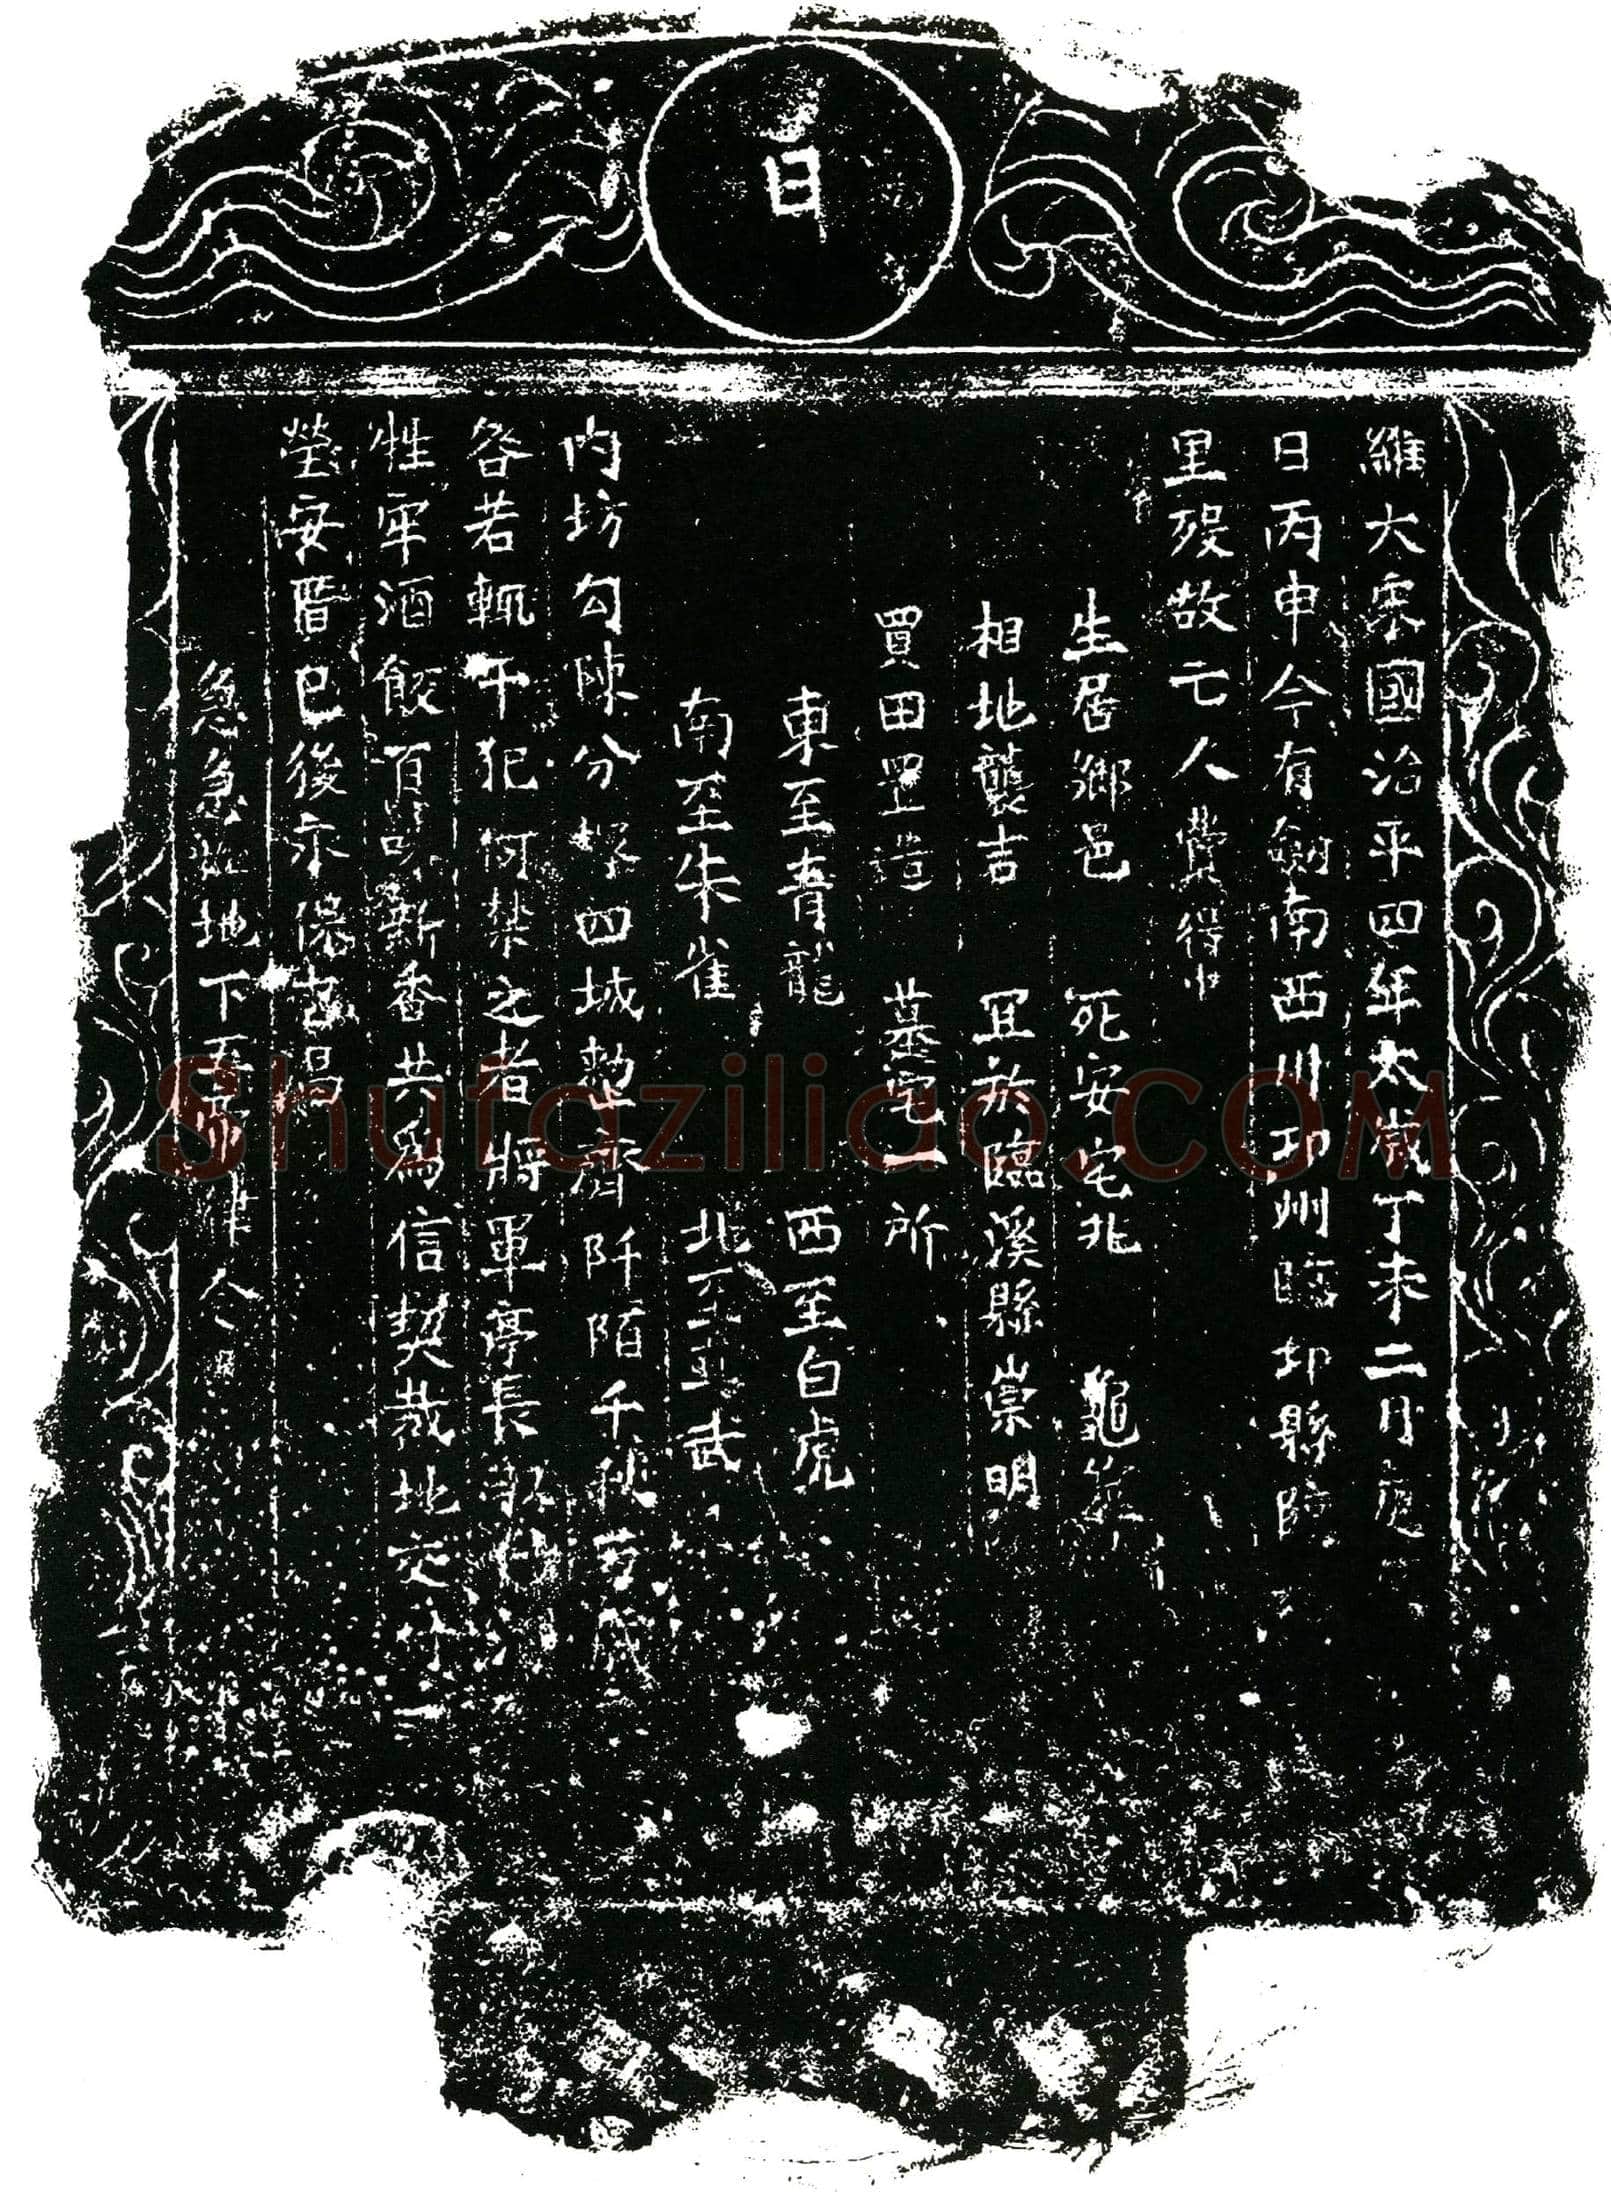 日
維大宋國治平四年太歲丁未二月
日丙申今有劍南西川邛州臨邛縣
里歿故亡人費得中
生居鄉邑 死安宅兆 龜筮
相地襲吉 宜於臨溪縣崇明
買田㘴造 墓宅一所
東至青龍 西至白虎
南至朱雀 北至玄武
內坊勾陳分擘四域 齊阡陌千秋萬歲
各若輒干犯何禁之者將軍亭長
牲牢酒飯百味新香共為信契裁地交
塋安厝已後永保吉昌
急急 地下 律令
Shufaziliao.COM